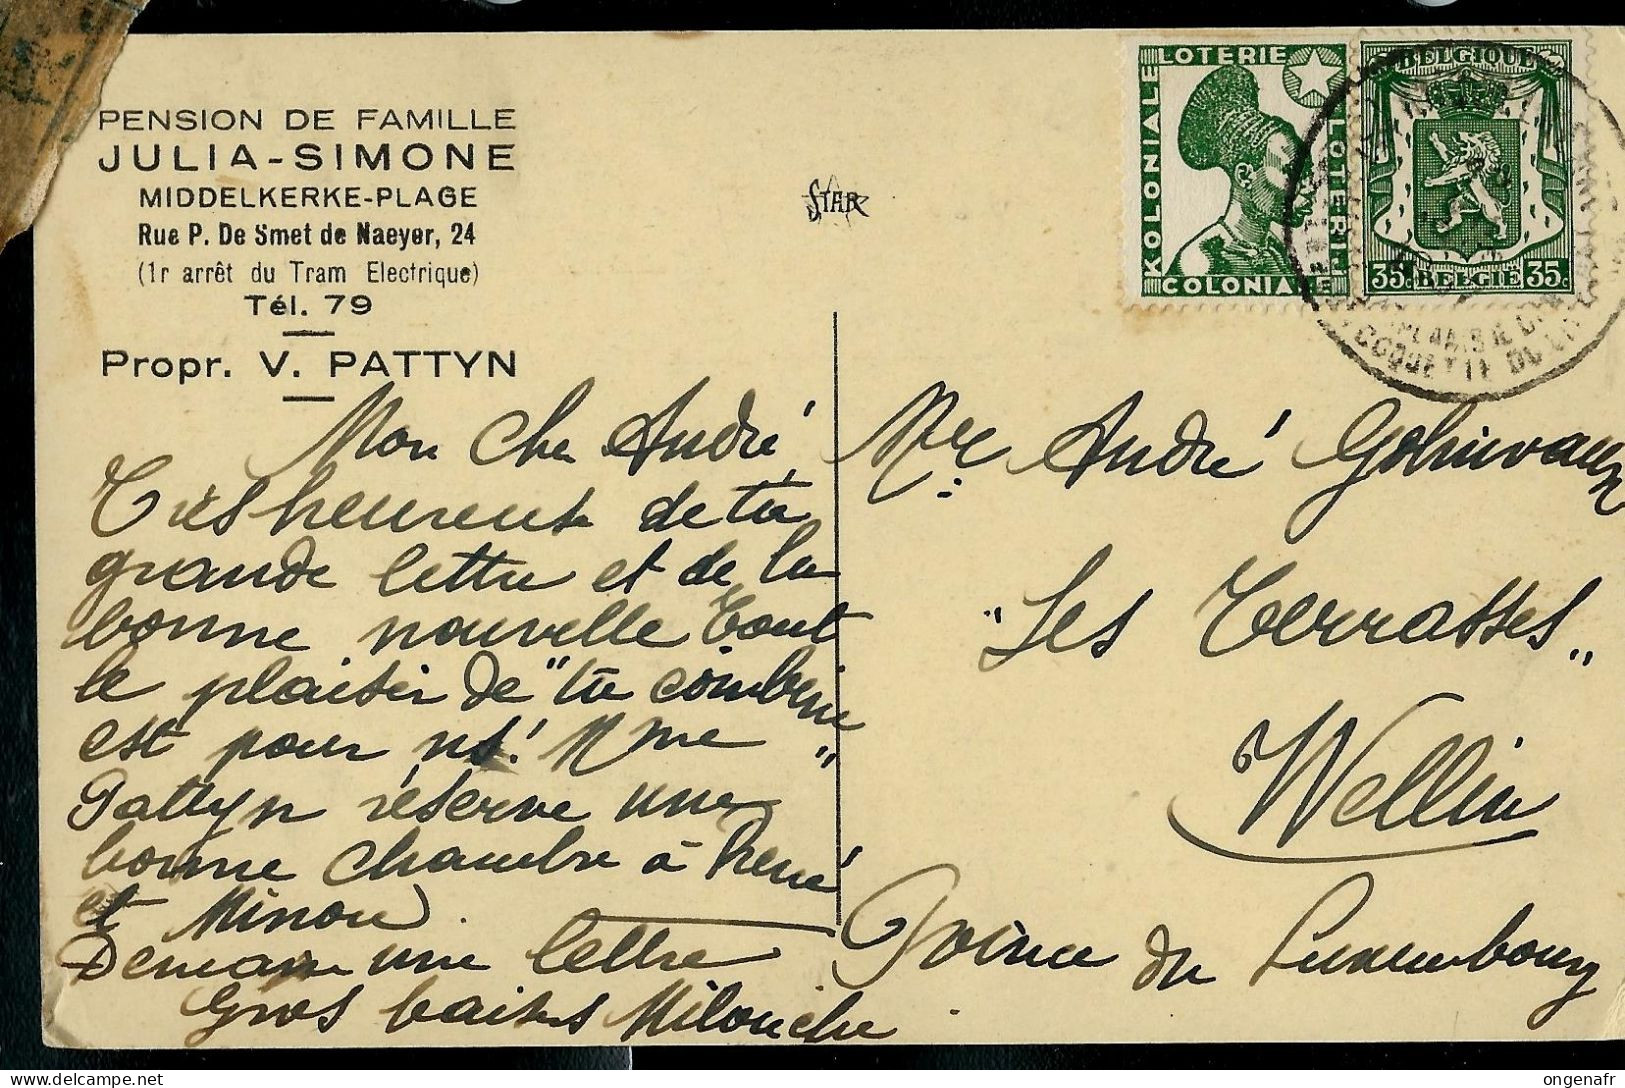 PENSION DE FAMILLE
JULIA-SIMONE
MIDDELKERKE-PLAGE
Rue P. De Smet de Naeyer, 24
(1r arrêt du Tram Electrique)
Tél. 79
Propr. V. PATTYN
STAR
LOTERIE
KOLONIALE
LOTERIJ
COLONIALE
BELGIQUE
35c BELGIE 35c
COQUETTE DU LIT
Mon Cher André,
Très heureuse de ta
grande lettre et de la
bonne nouvelle Tout
le plaisir de "ta combine"
est pour ns! Mme
Pattyn réserve une
bonne chambre à René
et Minou.
Demain une lettre
Gros baisers Milouche
Mr André
"Les Terrasses"
Wellin
Province du Luxembourg
delcampe.net
ongenafr